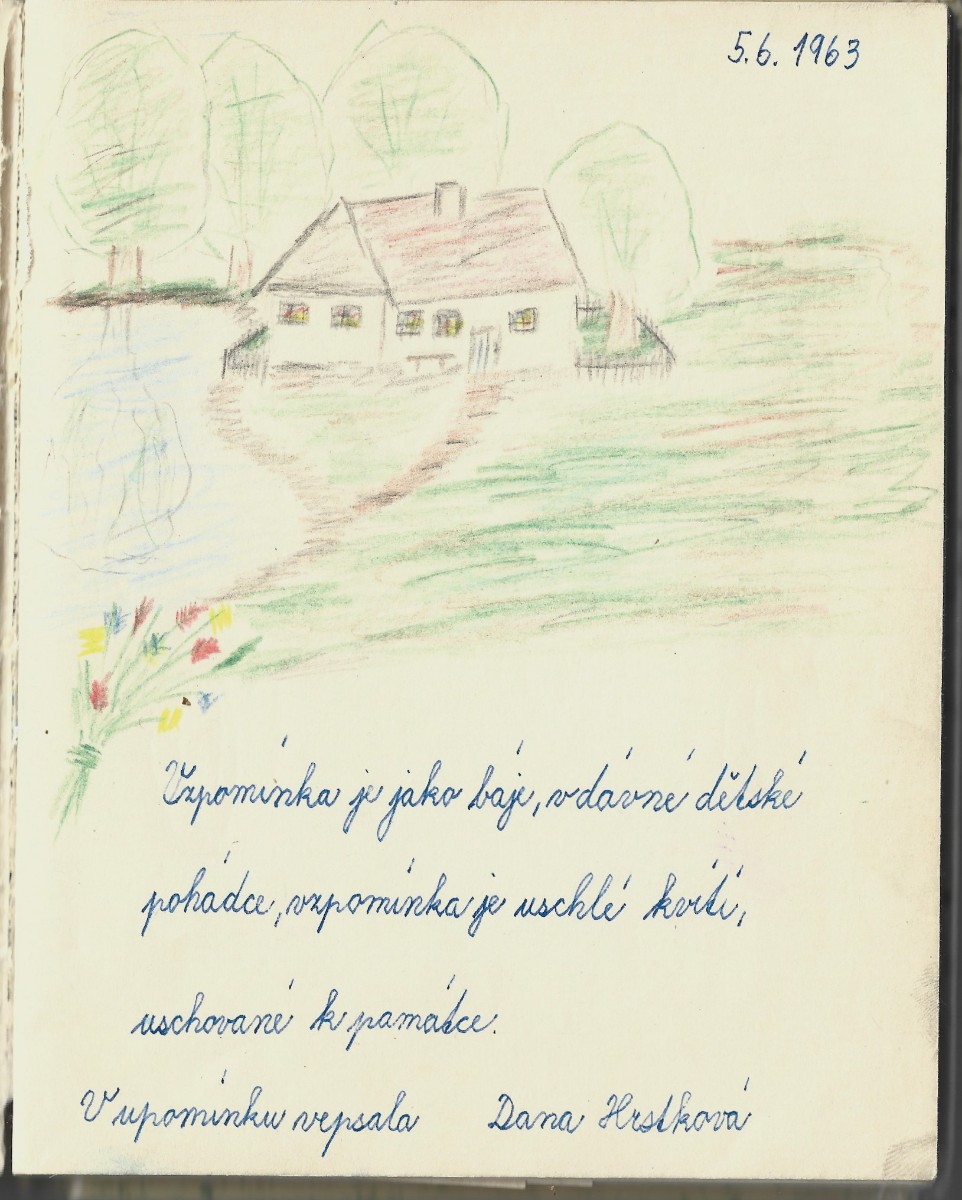 5.6. 1963
Vzpomínka je jako báje, v dávné dětské
pohádce, vzpomínka je uschlé kvítí,
uschované k památce.
V upomínku vepsala Dana Hrstková